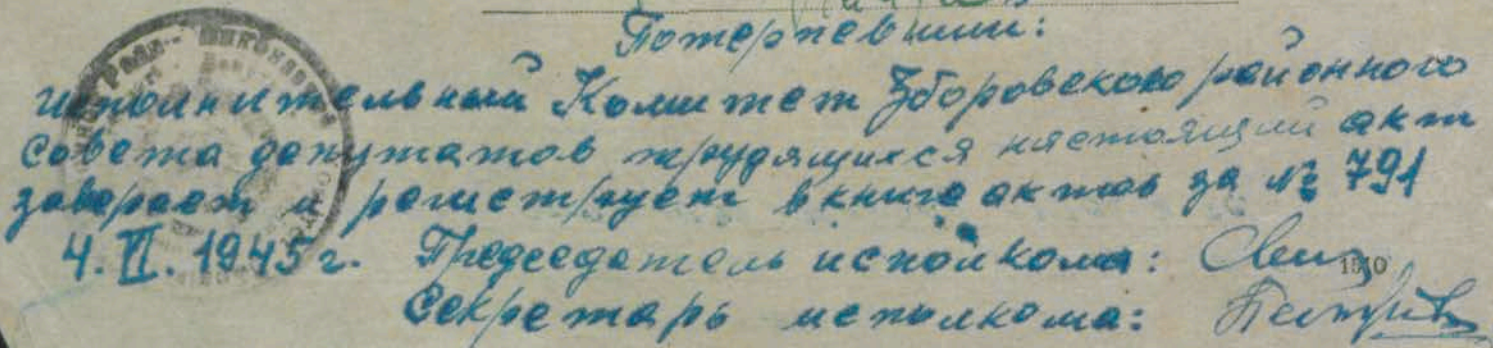 Потерпевший:
исполнительный Комитет Зборовского районного
совета депутатов трудящихся настоящий акт
заверает и региструет в книге актов за № 791
4.VI.1945 г. Председатель исполкома:
1510
Секретарь исполкома: